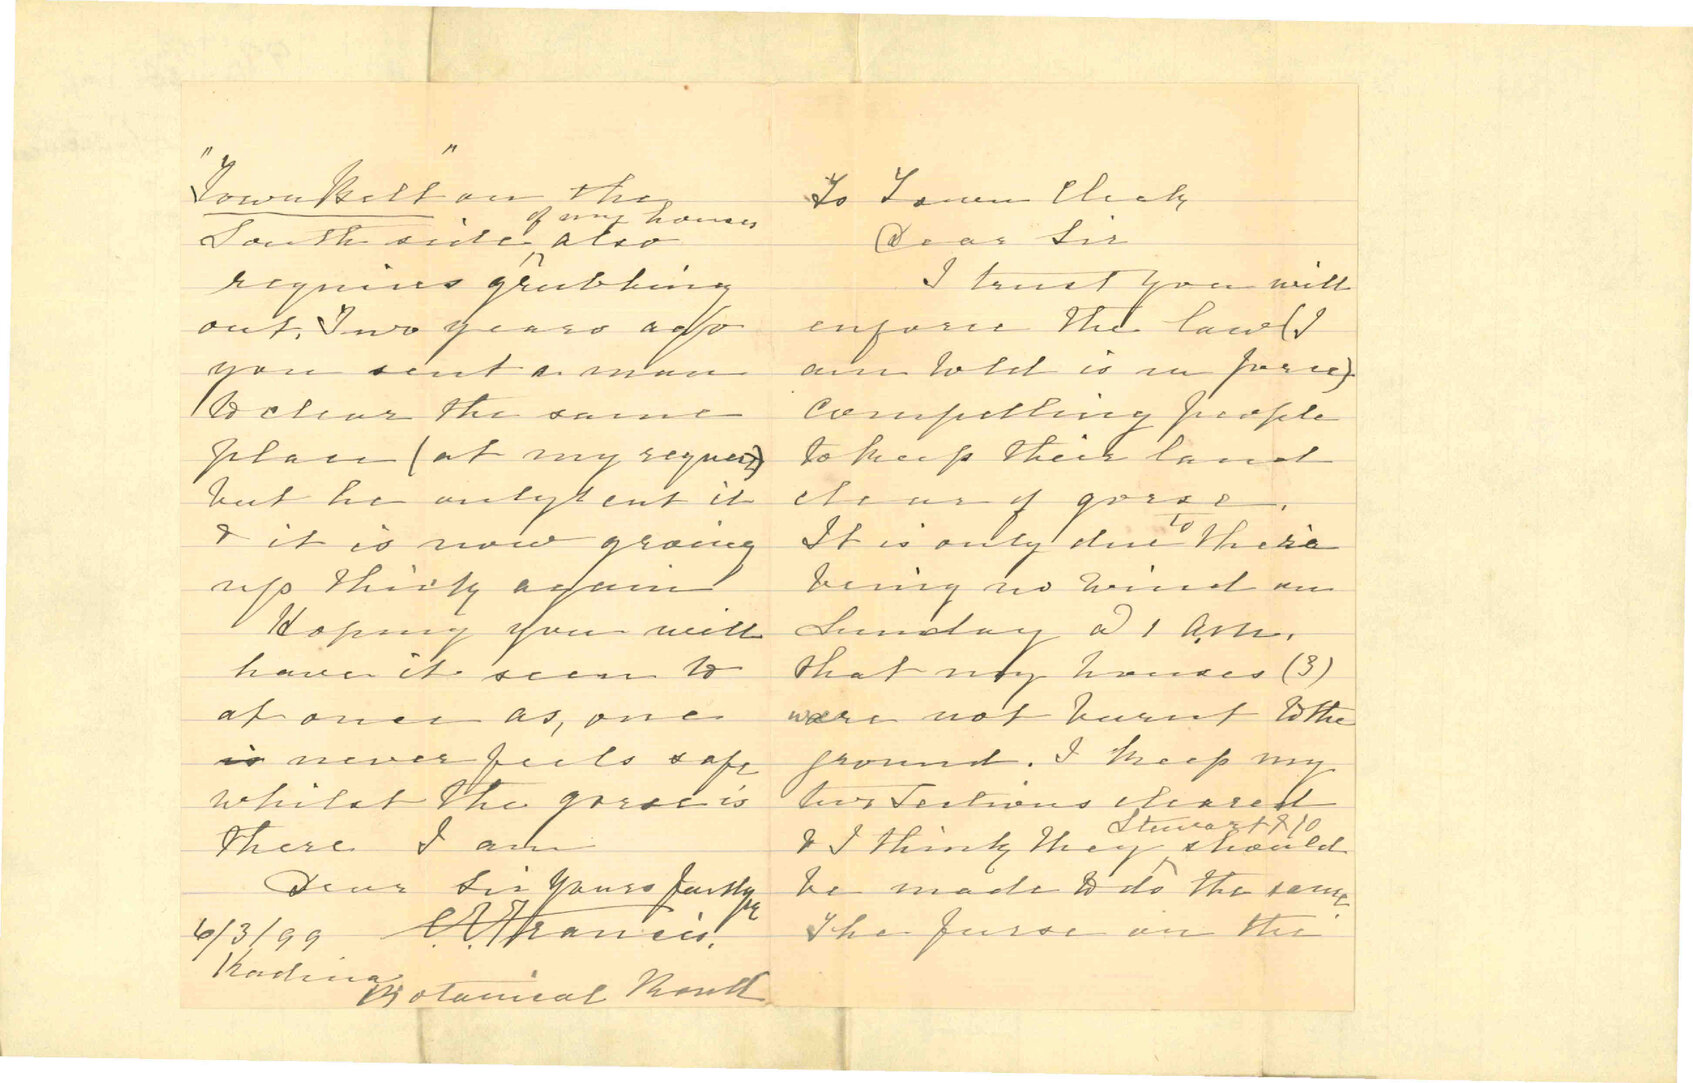 To Town Clerk
Dear Sir
I trust you will
enforce the law (I
am told is in force)
compelling people
to keep their land
clear of gorse.
It is only due to there
being no wind on
Sunday at 1 A.M.
that my houses (3)
were not burnt to the
ground. I keep my
two Sections cleared
& I think they Stewart & Co should
be made to do the same
The furse on the
"Town Belt" on the
South side of my houses also
requires grubbing
out. Two years ago
you sent a man
to clear the same
place (at my request)
but he only cut it
& it is now growing
up thickly again
Hoping you will
have it seen to
at once as, one
is never feels safe
whilst the gorse is
there I am
Dear Sir Yours faithfly
6/3/99 C. E. Francis.
Kadina
Botanical Road